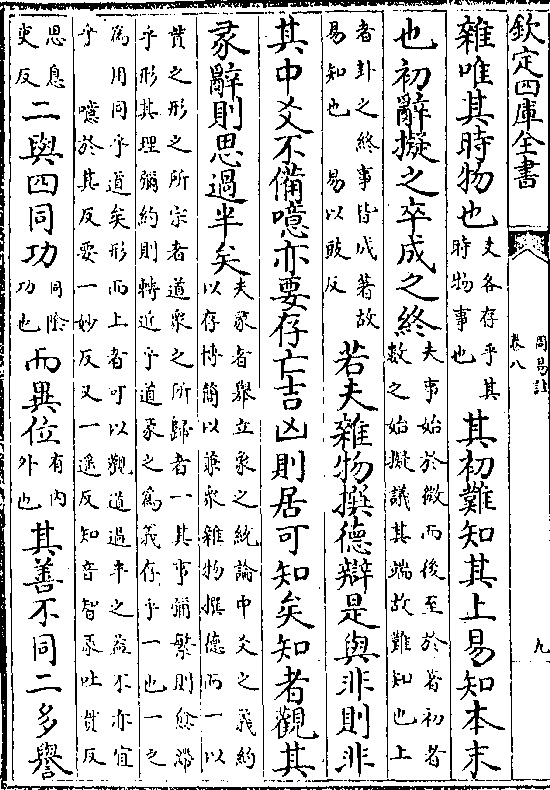 欽定四庫全書 周易註 卷八 九
雜唯其時物也 爻各存乎其 時物事也 其初難知其上易知本末
也初辭擬之卒成之終 夫事始於微而後至於著初者 數之始擬議其端故難知也上
者卦之終事皆成著故 易知也 易以豉反 若夫雜物撰德辯是與非則非
其中爻不備噫亦要存亡吉凶則居可知矣知者觀其
彖辭則思過半矣 夫彖者舉立象之統論中爻之義約 以存博簡以兼衆雜物撰德而一以
貫之形之所宗者道衆之所歸者一其事彌繁則愈滯 乎形其理彌約則轉近乎道彖之爲義存乎一也一之
爲用同乎道矣形而上者可以觀道過半之益不亦宜 乎 噫於其反要一妙反又一遥反知音智彖吐貫反
思息 吏反 二與四同功 同陰 功也 而異位 有内 外也 其善不同二多譽